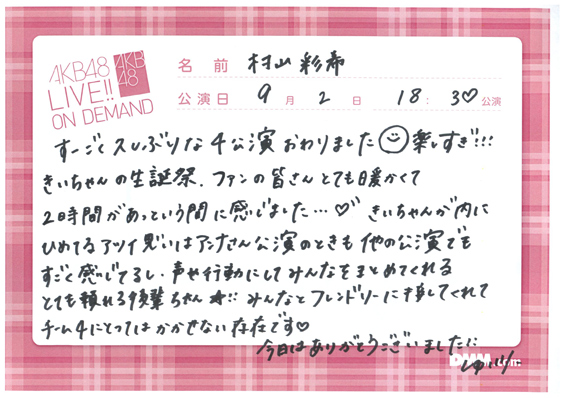 AKB48
LIVE!!
ON DEMAND
AKB
48
名前 村山彩希
公演日 9月2日 18:30公演
すーごく久しぶりな4公演おわりました 楽しすぎ!!!
きいちゃんの生誕祭、ファンの皆さんとても暖かくて
2時間があっという間に感じました…♡ きいちゃんが内に
ひめてるアツイ思いはアンナさん公演のときも他の公演でも
すごく感じてるし、声や行動にしてみんなをまとめてくれる
とても頼れる後輩ちゃん☆!! みんなとフレンドリーに接してくれて
チーム4にとってはかかせない存在です♡
今日はありがとうございました
DMM.com